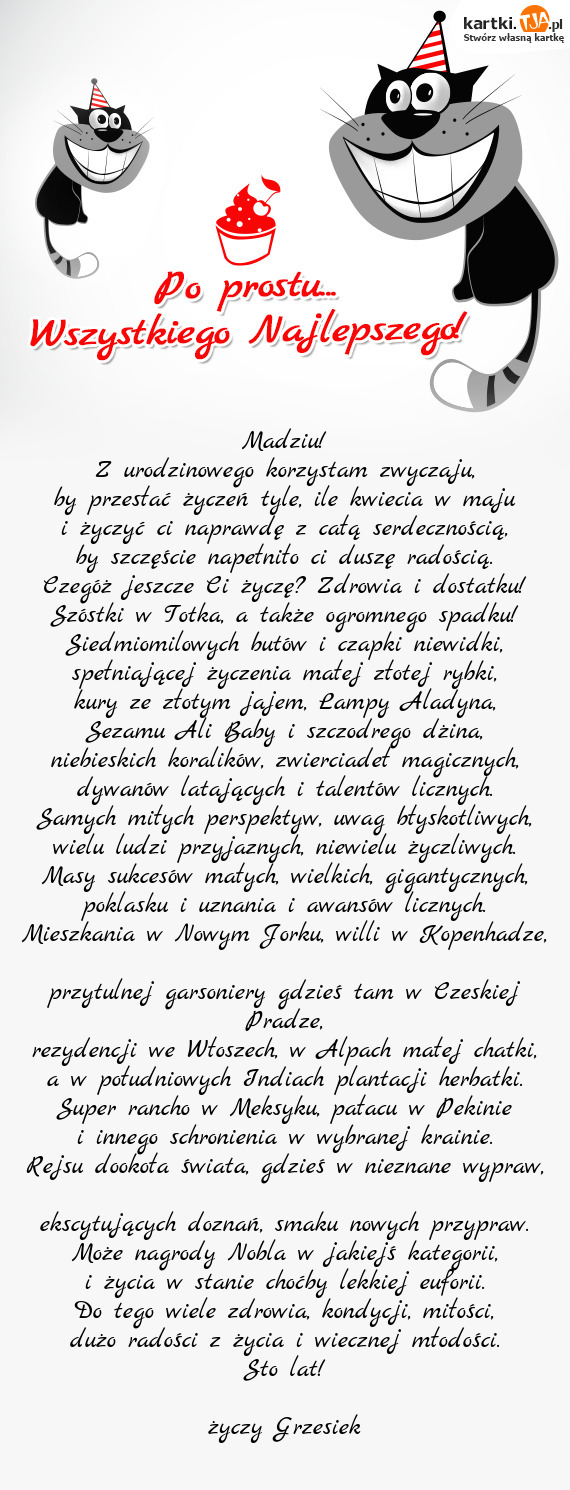 kartki.TJA.pl
Stwórz własną kartkę
Po prostu...
Wszystkiego Najlepszego!
Madziu!
Z urodzinowego korzystam zwyczaju,
by przesłać życzeń tyle, ile kwiecia w maju
i życzyć ci naprawdę z całą serdecznością,
by szczęście napełniło ci duszę radością.
Czegóż jeszcze Ci życzę? Zdrowia i dostatku!
Szóstki w Totka, a także ogromnego spadku!
Siedmiomilowych butów i czapki niewidki,
spełniającej życzenia małej złotej rybki,
kury ze złotym jajem, Lampy Aladyna,
Sezamu Ali Baby i szczodrego dżina,
niebieskich koralików, zwierciadeł magicznych,
dywanów latających i talentów licznych.
Samych miłych perspektyw, uwag błyskotliwych,
wielu ludzi przyjaznych, niewielu życzliwych.
Masy sukcesów małych, wielkich, gigantycznych,
poklasku i uznania i awansów licznych.
Mieszkania w Nowym Jorku, willi w Kopenhadze,
przytulnej garsoniery gdzieś tam w Czeskiej
Pradze,
rezydencji we Włoszech, w Alpach małej chatki,
a w południowych Indiach plantacji herbatki.
Super rancho w Meksyku, pałacu w Pekinie
i innego schronienia w wybranej krainie.
Rejsu dookoła świata, gdzieś w nieznane wypraw,
ekscytujących doznań, smaku nowych przypraw.
Może nagrody Nobla w jakiejś kategorii,
i życia w stanie choćby lekkiej euforii.
Do tego wiele zdrowia, kondycji, miłości,
dużo radości z życia i wiecznej młodości.
Sto lat!
życzy Grzesiek